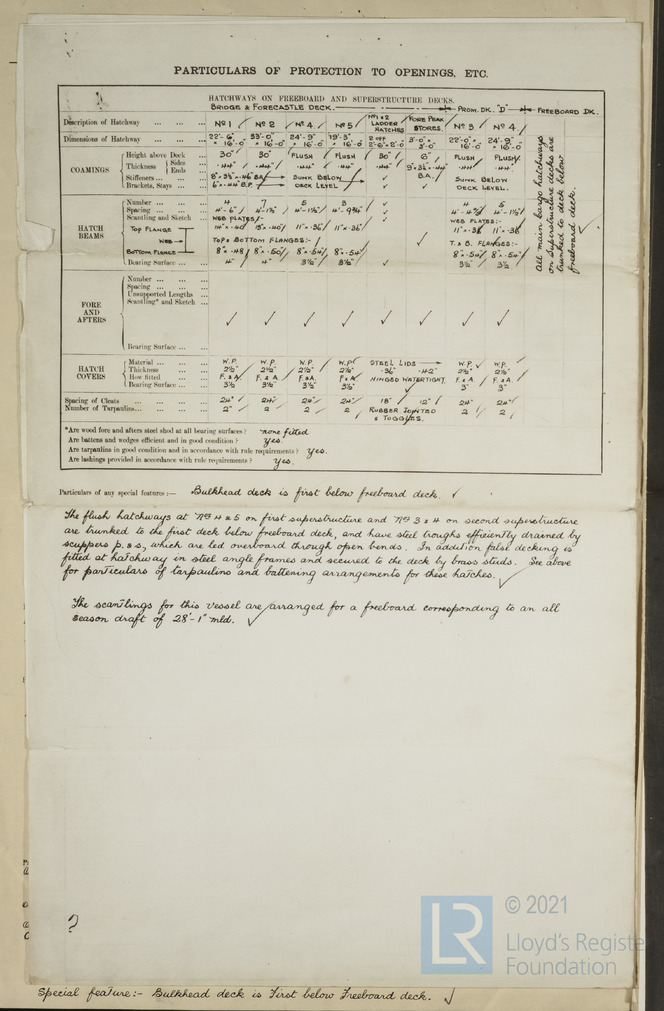 PARTICULARS OF PROTECTION TO OPENINGS, ETC.
HATCHWAYS ON FREEBOARD AND SUPERSTRUCTURE DECKS.
BRIDGE & FORECASTLE DECK. PROM. DK. "D" FREEBOARD DK.
Description of Hatchway ... ... ... Nº 1 Nº 2 Nº 4 Nº 5 Nº 1 & 2 LADDER HATCHES FORE PEAK STORES. Nº 3 Nº 4
Dimensions of Hatchway ... ... ... 22'-6" × 16'-0 33'-0" × 16'-0 24'-9" × 16'-0 19'-3" × 16'-0 2'-6" × 2'-0 3'-0" × 3'-0 22'-0" × 16'-0 24'-9" × 16'-0
COAMINGS
Height above Deck ... 30" 30" FLUSH FLUSH 30" 6" FLUSH FLUSH
Thickness Sides ... .44" .44" .44" .44" .44" .44
Ends
Stiffeners ... ... ... 8" × 3½ × .46 B.A. SUNK BELOW DECK LEVEL B.A. SUNK BELOW
Brackets, Stays ... ... 6" × .44" B.P. DECK LEVEL.
HATCH BEAMS
Number ... ... ... 4 7 5 3 4 5
Spacing ... ... ... 4'-6" 4'-1½" 4'-1½" 4'-9¾" 4'-4¾" 4'-1½"
Scantling and Sketch ... WEB PLATES:- WEB PLATES:-
TOP FLANGE 14" × .40 15" × .40 11" × .36 11" × .36 11" × .36 11" × .36
WEB TOP & BOTTOM FLANGES:- T. & B. FLANGES:-
BOTTOM FLANGE 8" × .48 8" × .50 8" × .54 8" × .54 8" × .54 8" × .54
Bearing Surface ... ... 4" 4" 3½" 3½" 3½" 3½
All main cargo hatchways
on superstructure decks are
trunked to deck below
freeboard deck.
FORE AND AFTERS
Number ... ... ...
Spacing ... ... ...
Unsupported Lengths ...
Scantling* and Sketch ...
Bearing Surface ... ...
HATCH COVERS
Material ... ... ... W.P. W.P. W.P. W.P. STEEL LIDS W.P. W.P.
Thickness ... ... ... 2½" 2½" 2½" 2½" .36" .42" 2½" 2½"
How fitted ... ... ... F. & A. F. & A. F. & A. F. & A. HINGED WATERTIGHT. F. & A. F. & A.
Bearing Surface ... ... 3½ 3½" 3½" 3½" 3" 3"
Spacing of Cleats ... ... ... 24" 24" 24" 24" 18" 12" 24" 24"
Number of Tarpaulins ... ... ... 2 2 2 2 RUBBER JOINTED & TOGGLES. 2 2
*Are wood fore and afters steel shod at all bearing surfaces ? none fitted
Are battens and wedges efficient and in good condition ? Yes.
Are tarpaulins in good condition and in accordance with rule requirements ? Yes.
Are lashings provided in accordance with rule requirements ? Yes.
Particulars of any special features :— Bulkhead deck is first below freeboard deck.
The flush hatchways at Nos 4 & 5 on first superstructure and Nos 3 & 4 on second superstructure
are trunked to the first deck below freeboard deck, and have steel troughs efficiently drained by
scuppers p. & s, which are led overboard through open bends. In addition false decking is
fitted at hatchway in steel angle frames and secured to the deck by brass studs. See above
for particulars of tarpaulins and battening arrangements for these hatches.
The scantlings for this vessel are arranged for a freeboard corresponding to an all
season draft of 28'-1" mld.
?
© 2021
LR
Lloyd's Register
Foundation
Special feature:- Bulkhead deck is First below Freeboard deck.